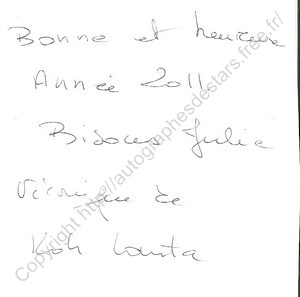 Bonne et heureuse
Année 2011
Bisous Julie
de
Koh Lanta
Copyright http://autographesdestars.free.fr/